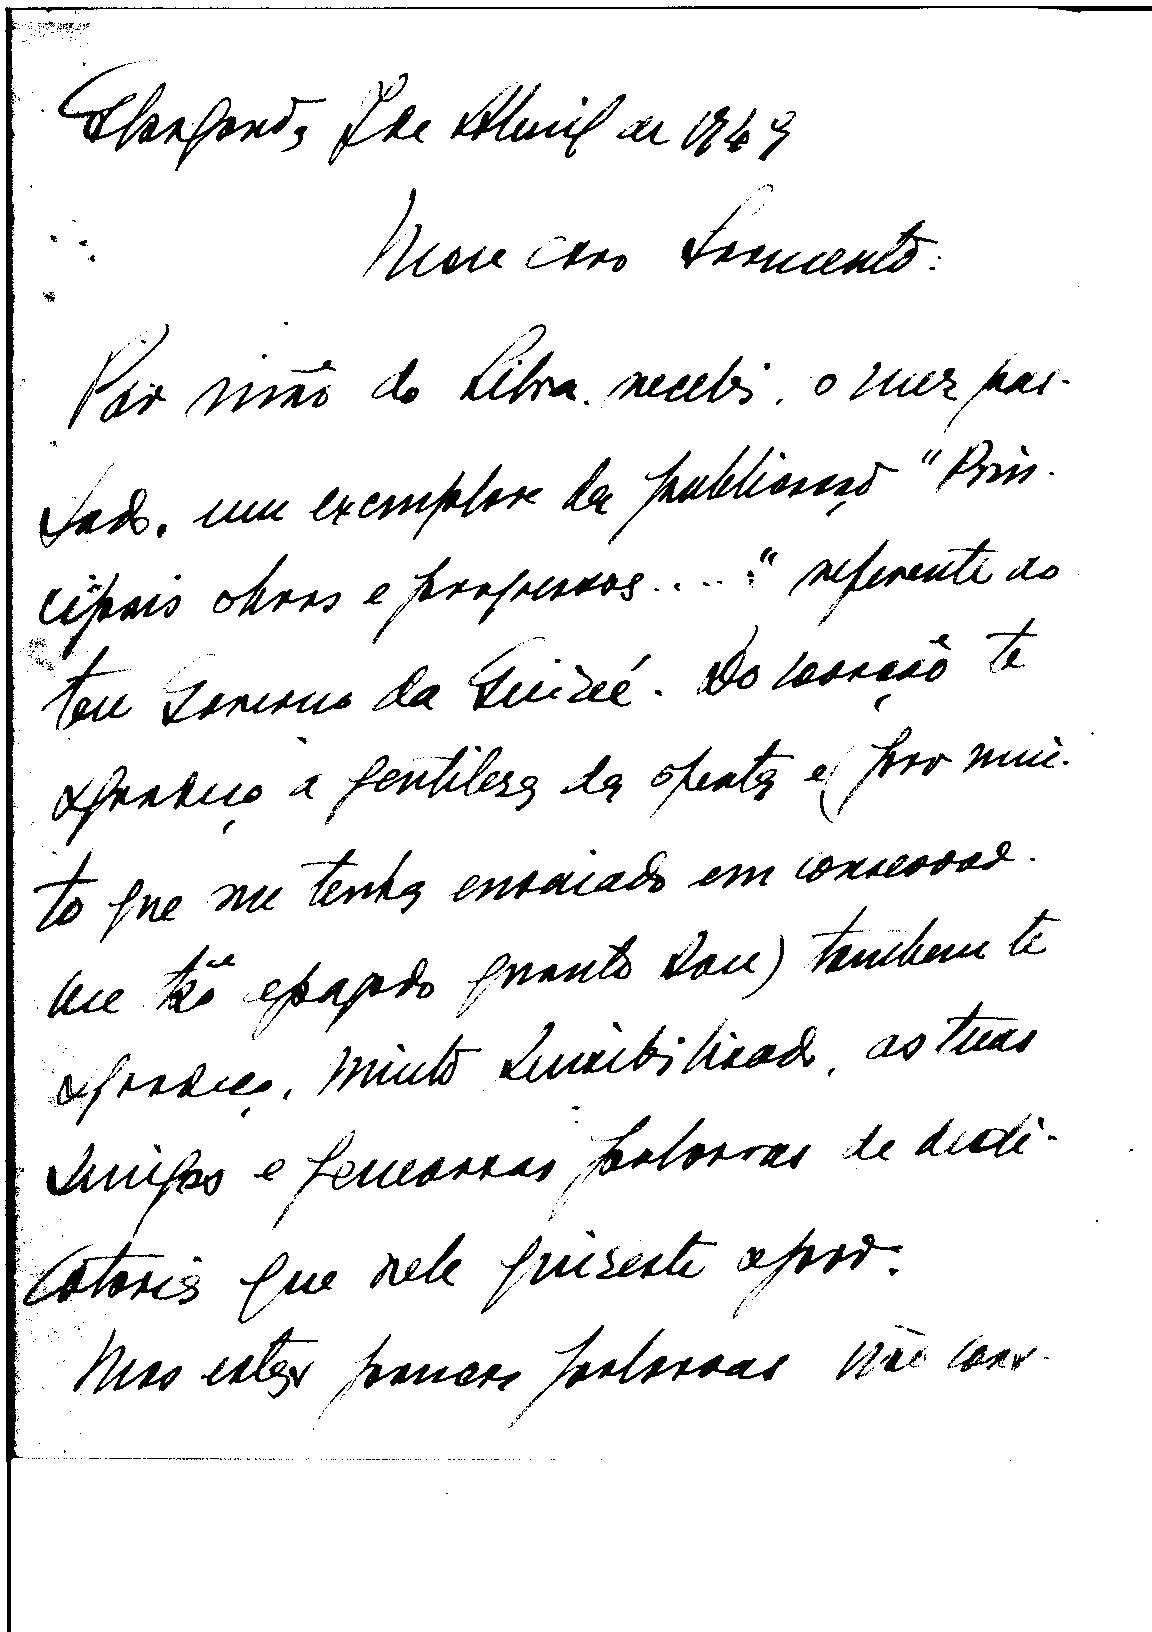 7 de Abril de 1949
Meu caro Sarmento:
Por mão do Silva, recebi, o mez pas-
sado, um exemplar da publicação "Prin-
cipais obras e progressos ....." referente ao
teu Governo da Guiné. Do coração te
agradeço a gentileza da oferta e (por mui-
to que me tenha ensaiado em conservar-
me tão apagado quanto sou) tambem te
agradeço, muito sensibilizado, as tuas
amigas e generosas palavras de dedi-
catoria que nele quizeste apor.
Mas estas poucas palavras não